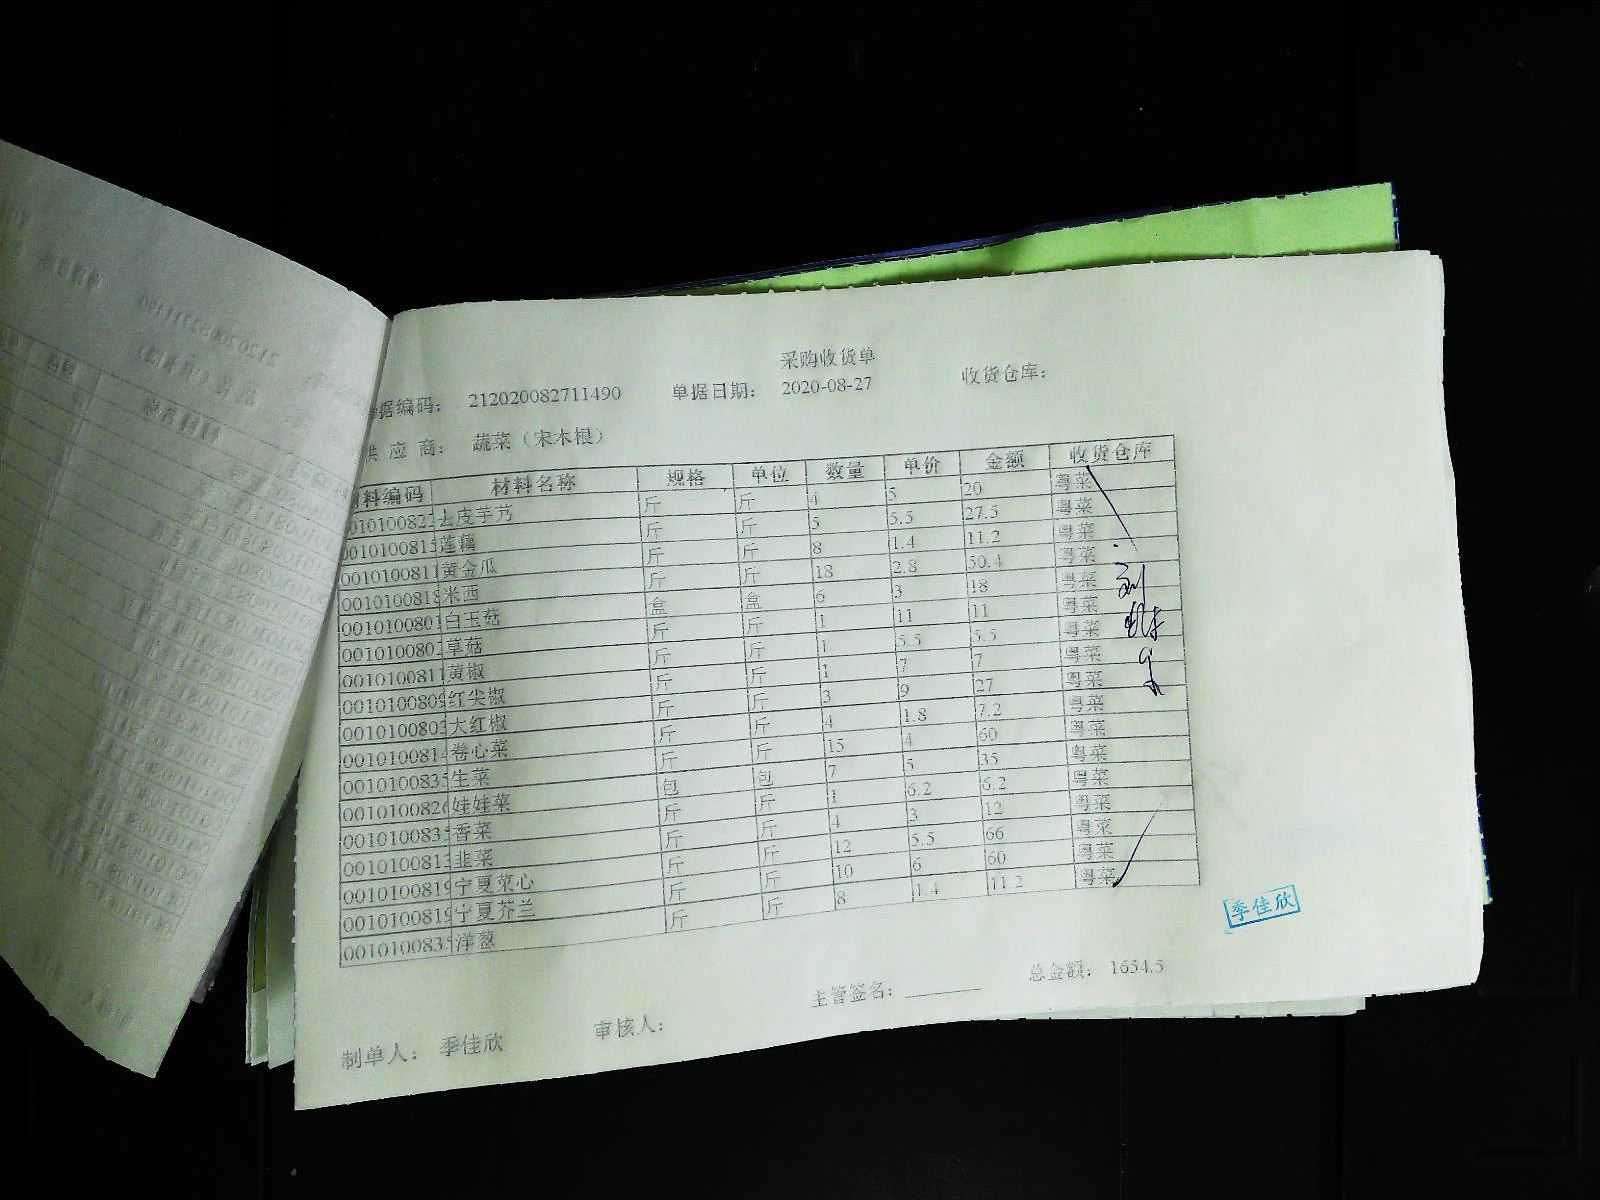 采购收货单
据编码： 212020082711490 单据日期： 2020-08-27 收货仓库：
供 应 商： 蔬菜（宋木根）
材料编码 材料名称 规格 单位 数量 单价 金额 收货仓库
001010082 去皮芋艿 斤 斤 4 5 20 粤菜
001010081 莲藕 斤 斤 5 5.5 27.5 粤菜
001010081 黄金瓜 斤 斤 8 1.4 11.2 粤菜
001010081 米西 斤 斤 18 2.8 50.4 粤菜
001010080 白玉菇 盒 盒 6 3 18 粤菜
001010080 草菇 斤 斤 1 11 11 粤菜
001010081 黄椒 斤 斤 1 5.5 5.5 粤菜
001010080 红尖椒 斤 斤 1 7 7 粤菜
001010080 大红椒 斤 斤 3 9 27 粤菜
001010081 卷心菜 斤 斤 4 1.8 7.2 粤菜
001010083 生菜 斤 斤 15 4 60 粤菜
001010082 娃娃菜 包 包 7 5 35 粤菜
001010083 香菜 斤 斤 1 6.2 6.2 粤菜
001010081 韭菜 斤 斤 4 3 12 粤菜
001010081 宁夏菜心 斤 斤 12 5.5 66 粤菜
001010081 宁夏芥兰 斤 斤 10 6 60 粤菜
001010083 洋葱 斤 斤 8 1.4 11.2 粤菜
季佳欣
主管签名： 总金额： 1654.5
制单人： 季佳欣 审核人：